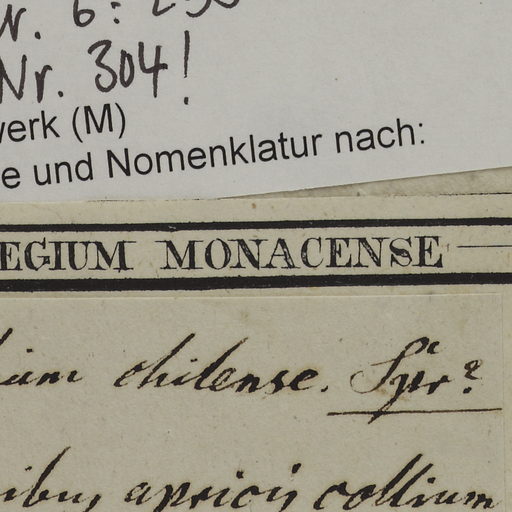 Nr. 6: 
Nr. 304!
werk (M)
e und Nomenklatur nach:
EGIUM MONACENSE
ium chilense. Spr?
ibus apricis collium